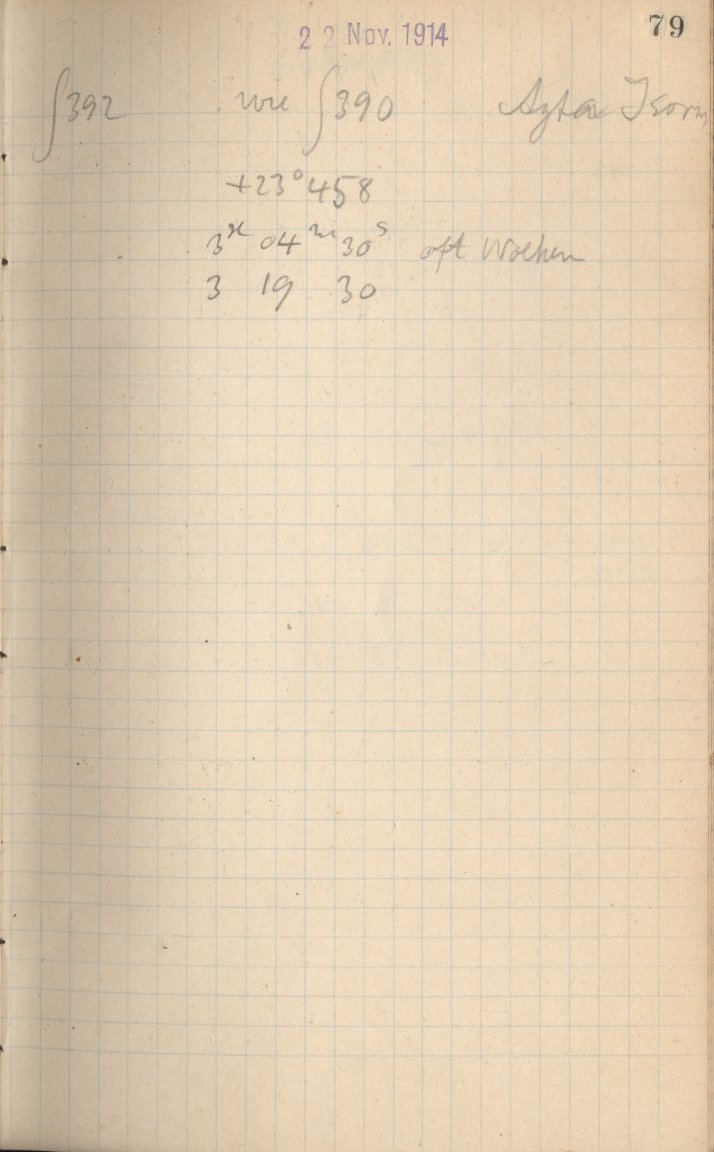 22 Nov. 1914 79
∫392 wie ∫390 Agfa Isorap
+23°458
3ʰ 04ᵐ 30ˢ oft Wolken
3 19 30